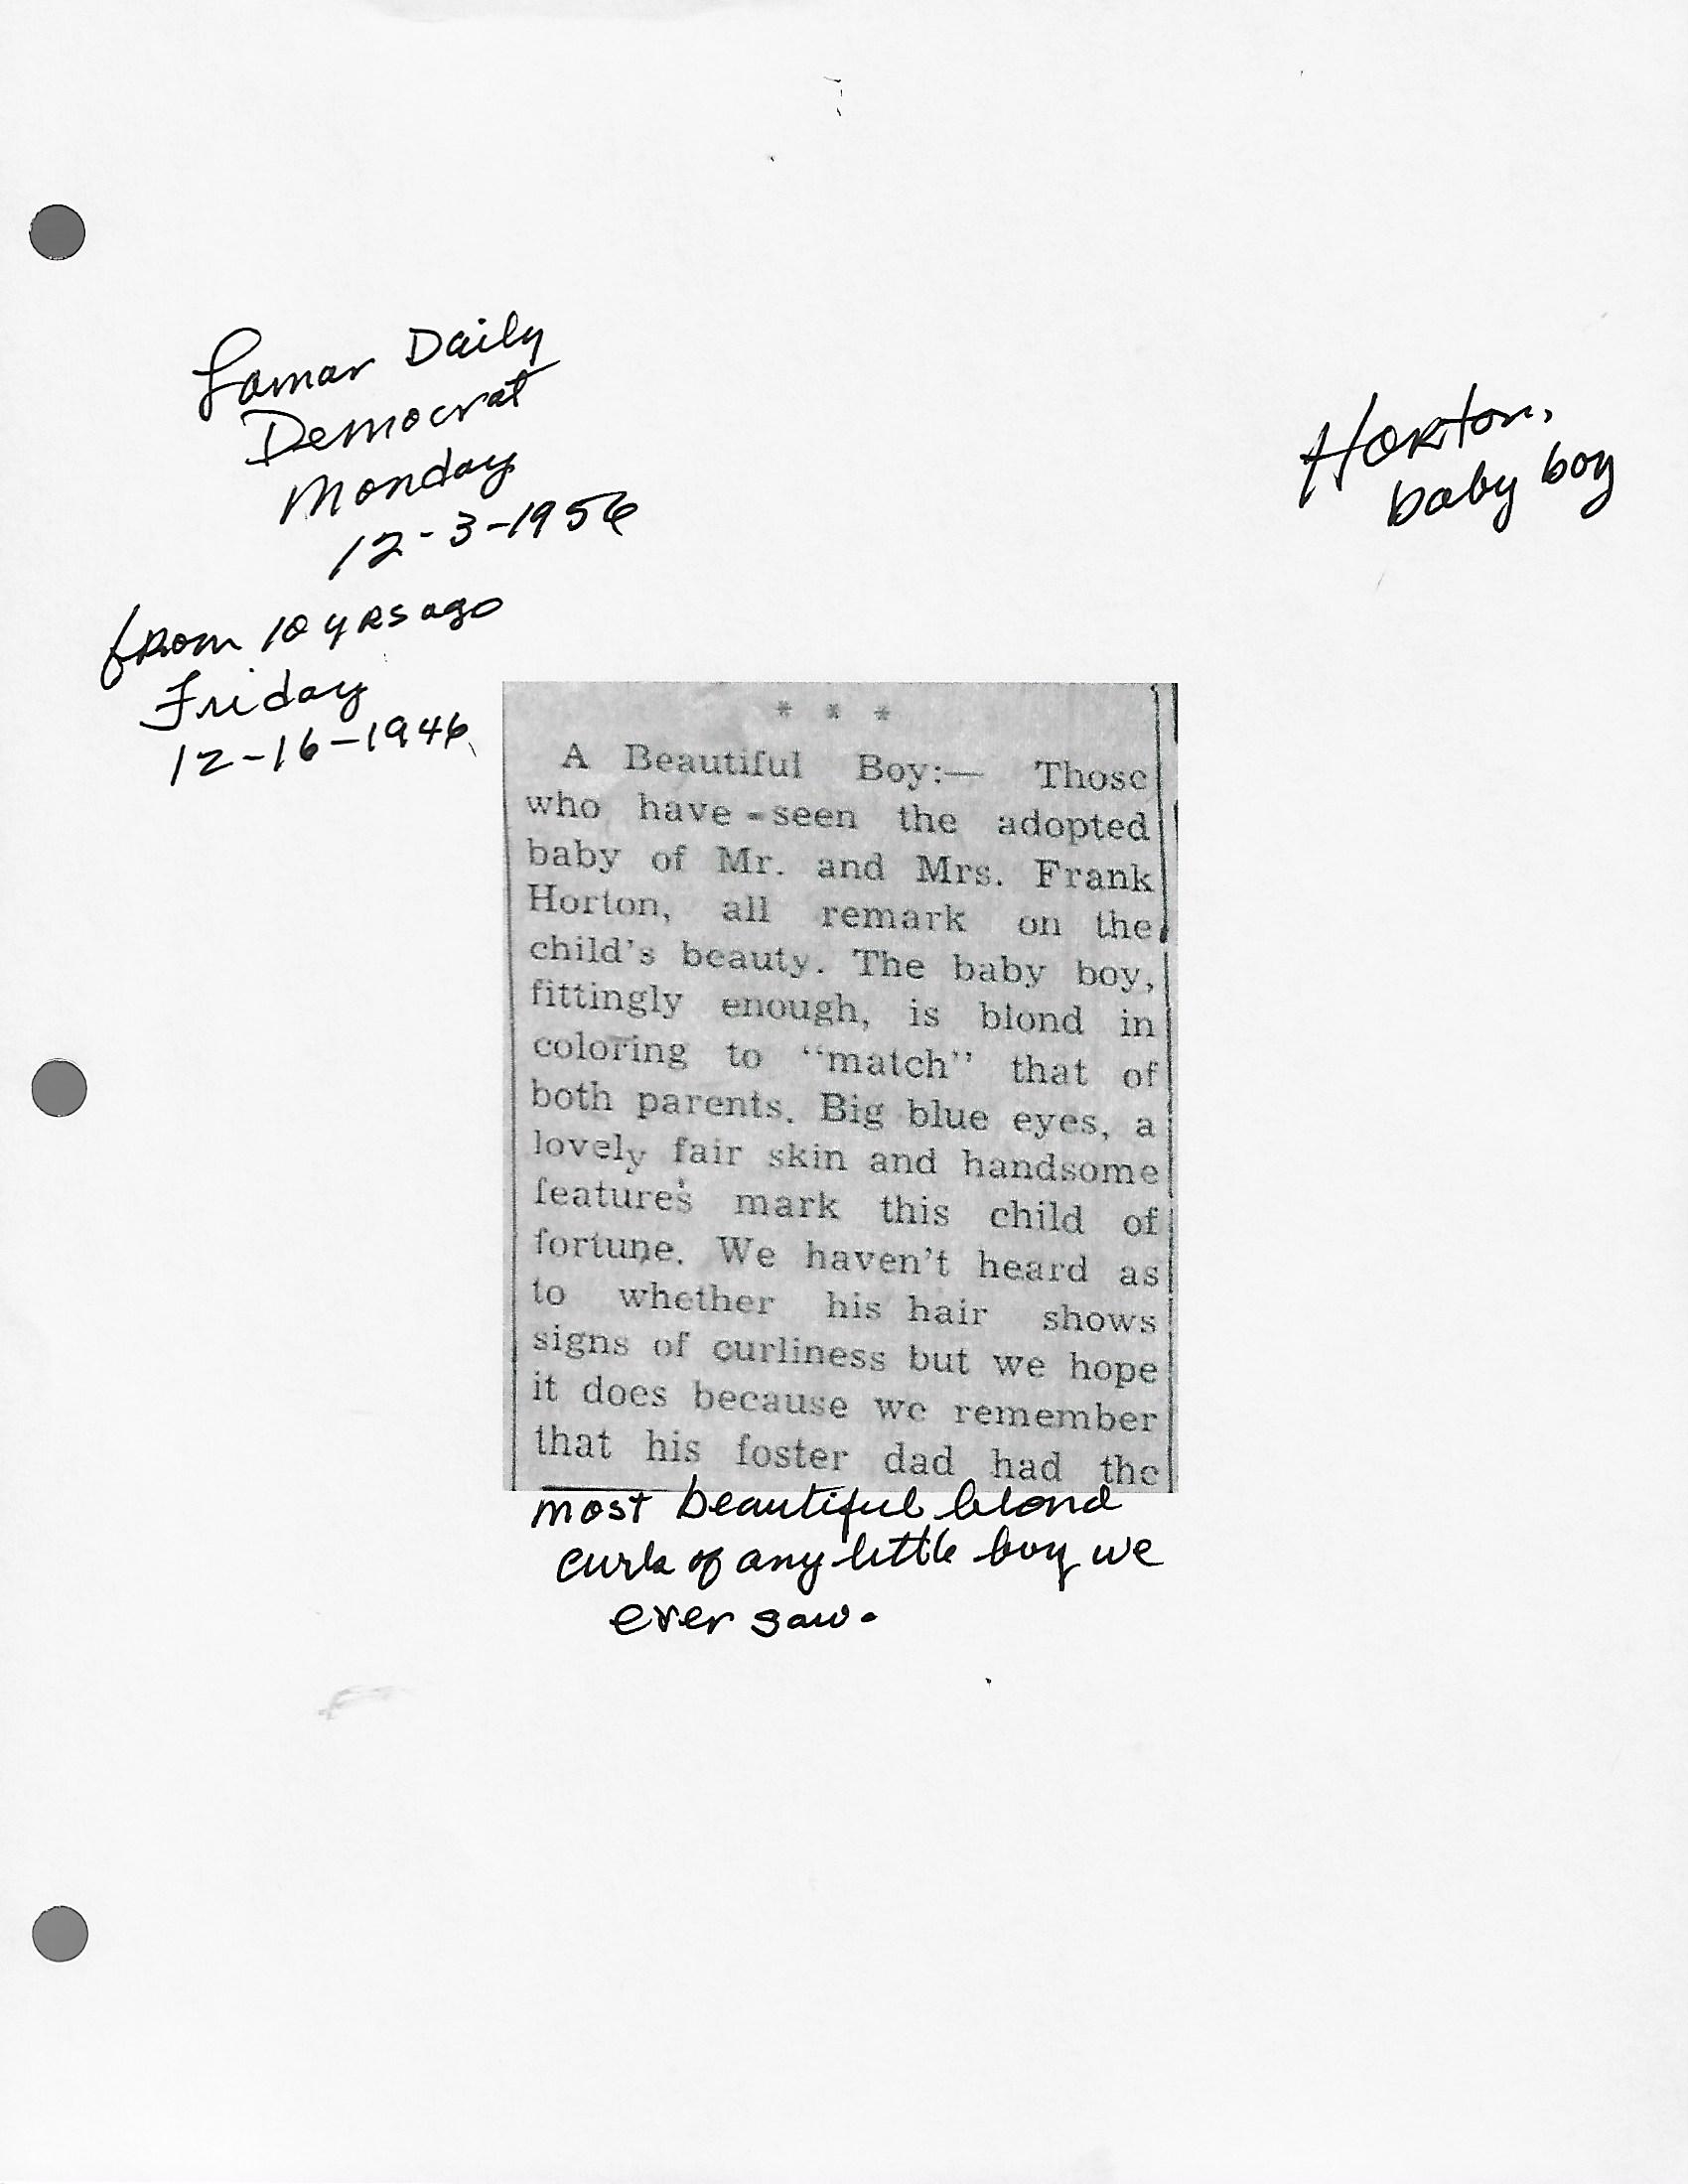 Lamar Daily
Democrat
Monday
12-3-1956
from 10 yrs ago
Friday
12-16-1946
Horton,
baby boy
* * *
A Beautiful Boy:— Those
who have seen the adopted
baby of Mr. and Mrs. Frank
Horton, all remark on the
child's beauty. The baby boy,
fittingly enough, is blond in
coloring to "match" that of
both parents. Big blue eyes, a
lovely fair skin and handsome
features mark this child of
fortune. We haven't heard as
to whether his hair shows
signs of curliness but we hope
it does because we remember
that his foster dad had the
most beautiful blond
curls of any little boy we
ever saw.